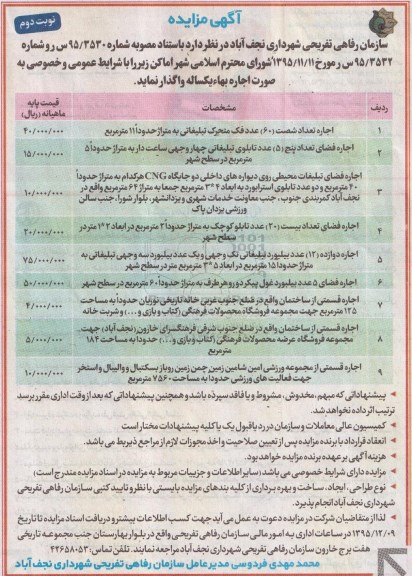 آگهی مزایده
نوبت دوم
سازمان رفاهی تفریحی شهرداری نجف آباد در نظر دارد باستناد مصوبه شماره ۹۵/۳۵۳۰ س ر و شماره
۹۵/۳۵۳۲ س ر مورخ ۱۳۹۵/۱۱/۱۱ شورای محترم اسلامی شهر اماکن زیر را با شرایط عمومی و خصوصی به
صورت اجاره بهاء یکساله واگذار نماید.
ردیف
مشخصات
قیمت پایه
ماهیانه (ریال)
۱
اجاره تعداد شصت (۶۰) عدد فک متحرک تبلیغاتی به متراژ حدوداً ۱۱ مترمربع
۴۰/۰۰۰/۰۰۰
۲
اجاره فضای تعداد پنج (۵) عدد تابلوی تبلیغاتی چهار وجهی ساعت دار به متراژ حدوداً ۵
مترمربع در سطح شهر
۱۵/۰۰۰/۰۰۰
۳
اجاره فضای تبلیغات محیطی روی دیواره های داخلی دو جایگاه CNG هرکدام به متراژ حدوداً
۲۰ مترمربع و دو عدد تابلوی استرابورد به ابعاد ۴*۳ مترمربع جمعا به متراژ ۶۴ مترمربع واقع در
نجف آباد کمربندی جنوب، جنب معاونت خدمات شهری و یزدانشهر، بلوار شورا، جنب سالن
ورزشی یزدان پاک
۱۰/۰۰۰/۰۰۰
۴
اجاره فضای تعداد بیست (۲۰) عدد تابلو کوچک به متراژ حدوداً ۲ مترمربع در ابعاد ۲*۱ متر در
سطح شهر
۲۰/۰۰۰/۰۰۰
۵
اجاره دوازده (۱۲) عدد بیلبورد تبلیغاتی تک وجهی و یک عدد بیلبورد سه وجهی تبلیغاتی به
متراژ حدودا ۱۵ مترمربع در ابعاد ۵*۳ متر در سطح شهر
۷۵/۰۰۰/۰۰۰
۶
اجاره فضای ۵ عدد بیلبورد غول پیکر دو رو هر طرف به متراژ حدوداً ۶۰ مترمربع در سطح شهر
۵۰/۰۰۰/۰۰۰
۷
اجاره قسمتی از ساختمان واقع در ضلع جنوب غربی خانه تاریخی نوریان حدوداً به مساحت
۱۲۵ مترمربع جهت مجموعه فروشگاه محصولات فرهنگی (کتاب و بازی و...) و شربت خانه
۴/۰۰۰/۰۰۰
۸
اجاره قسمتی از ساختمان واقع در ضلع جنوب شرقی فرهنگسرای خارون (نجف آباد) جهت
مجموعه فروشگاه عرضه محصولات فرهنگی (کتاب و بازی و...) حدوداً به مساحت ۱۸۴
مترمربع
۵/۰۰۰/۰۰۰
۹
اجاره قسمتی از مجموعه ورزشی امین شامین زمین چمن زمین روباز بسکتبال و والیبال و استخر
جهت فعالیت های ورزشی حدوداً به مساحت ۷۵۶۰ مترمربع
۱۰/۰۰۰/۰۰۰
پیشنهاداتی که مبهم، مخدوش، مشروط و یا فاقد سپرده باشد و همچنین پیشنهاداتی که بعد از وقت اداری مقرر برسد
ترتیب اثر داده نخواهد شد.
کمیسیون عالی معاملات و سازمان در رد یا قبول یک یا کلیه پیشنهادات مختار است
انعقاد قرارداد با برنده مزایده پس از تعیین صلاحیت و اخذ مجوزات لازم از مراجع ذیربط می باشد.
هزینه آگهی بر عهده برنده مزایده خواهد بود.
مزایده دارای شرایط خصوصی می باشد (سایر اطلاعات و جزییات مربوط به مزایده در اسناد مزایده مندرج است)
نوع طراحی، ایجاد، ساخت و بهره برداری از کلیه بندهای مزایده بایستی با نظر و تایید کتبی سازمان رفاهی تفریحی
شهرداری نجف آباد انجام پذیرد.
لذا از متقاضیان شرکت در مزایده دعوت به عمل می آید جهت کسب اطلاعات بیشتر و دریافت اسناد مزایده تا تاریخ
۱۳۹۵/۱۲/۰۹ در ساعات اداری به امور مالی سازمان رفاهی تفریحی واقع در بلوار بهارستان جنب مجموعه تاریخی
هفت برج خارون سازمان رفاهی تفریحی شهرداری نجف آباد مراجعه نمایند. تلفن تماس: ۴۲۶۵۸۰۵۳
محمد مهدی فردوسی مدیرعامل سازمان رفاهی تفریحی شهرداری نجف آباد